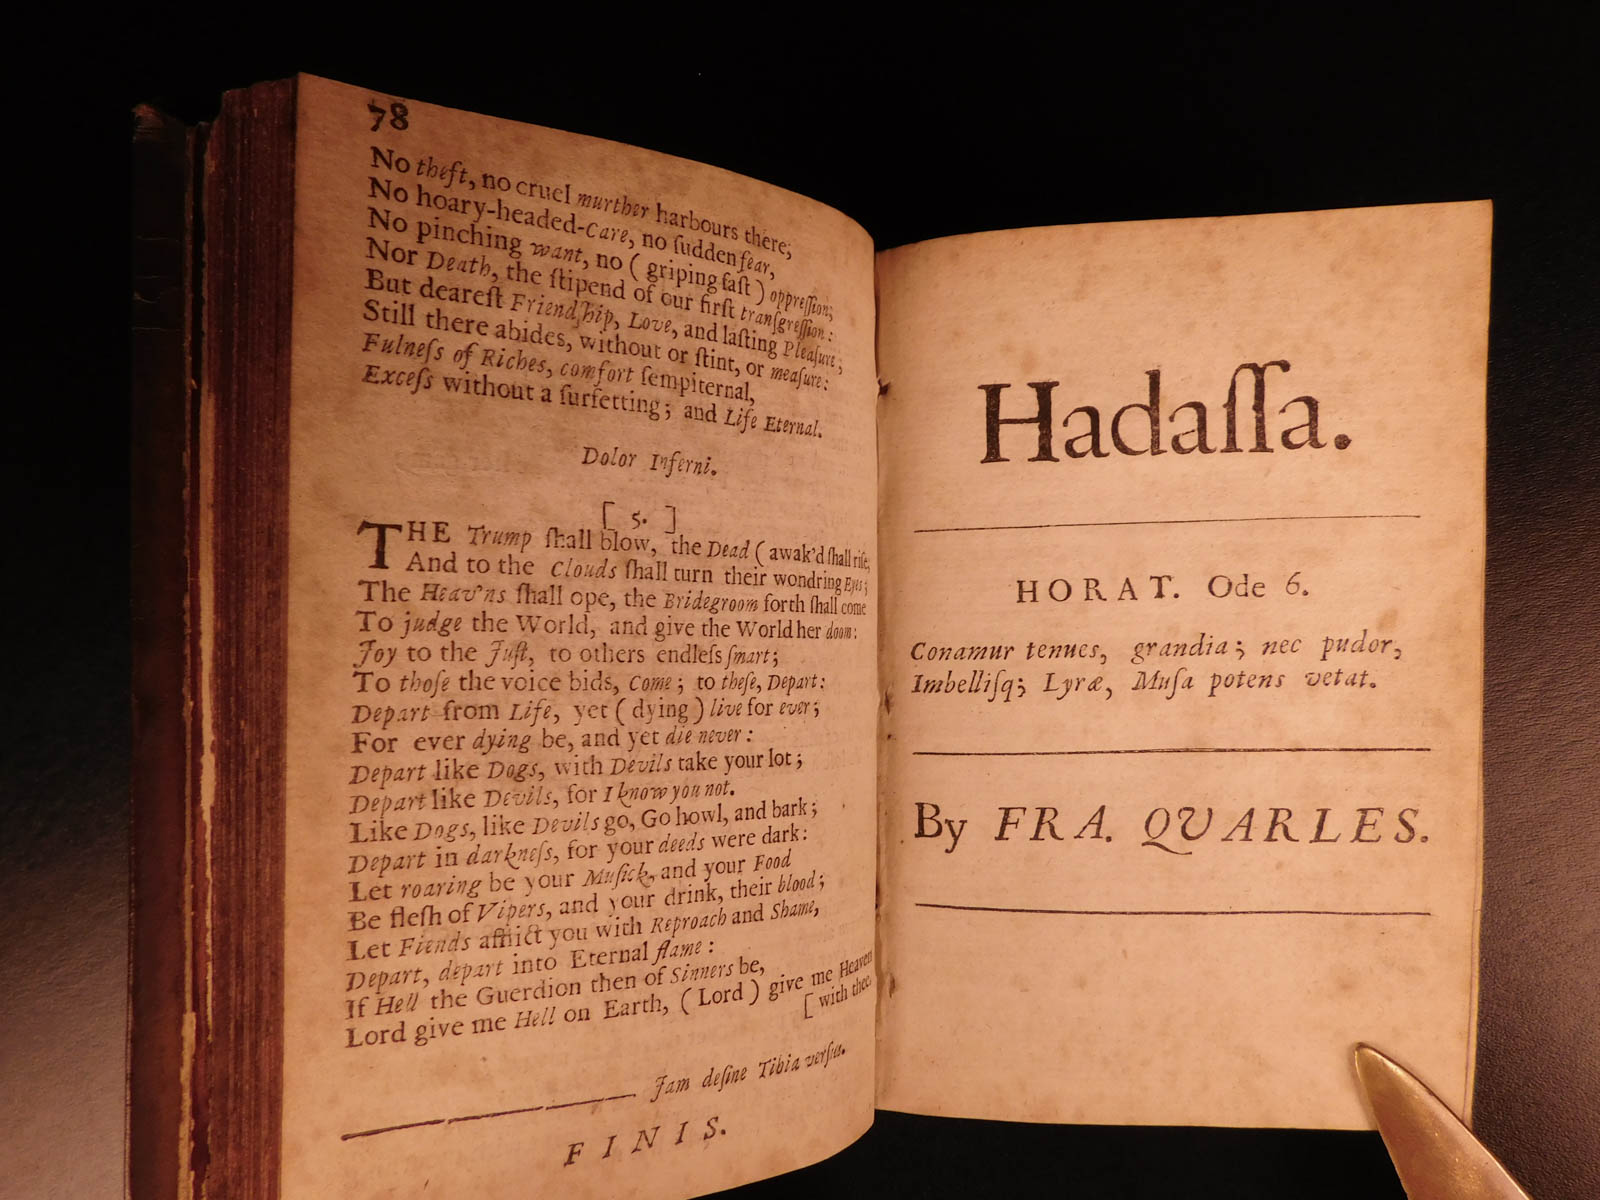 78
No theft, no cruel murther harbours there,
No hoary-headed-Care, no ſudden fear,
No pinching want, no ( griping faſt ) oppreſſion;
Nor Death, the ſtipend of our firſt tranſgreſſion:
But deareſt Friendſhip, Love, and laſting Pleaſure;
Still there abides, without or ſtint, or meaſure:
Fulneſs of Riches, comfort ſempiternal,
Exceſs without a ſurfetting; and Life Eternal.
Dolor Inferni.
[ 5. ]
THE Trump ſhall blow, the Dead ( awak'd ſhall riſe,
And to the Clouds ſhall turn their wondring Eyes;
The Heav'ns ſhall ope, the Bridegroom forth ſhall come
To judge the World, and give the World her doom:
Joy to the Juſt, to others endleſs ſmart;
To thoſe the voice bids, Come; to theſe, Depart:
Depart from Life, yet ( dying ) live for ever;
For ever dying be, and yet die never:
Depart like Dogs, with Devils take your lot;
Depart like Devils, for I know you not.
Like Dogs, like Devils go, Go howl, and bark;
Depart in darkneſs, for your deeds were dark:
Let roaring be your Muſick, and your Food
Be fleſh of Vipers, and your drink, their blood;
Let Fiends afflict you with Reproach and Shame,
Depart, depart into Eternal flame:
If Hell the Guerdion then of Sinners be,
Lord give me Hell on Earth, ( Lord ) give me Heaven
[ with thee.
Jam deſine Tibia verſus.
FINIS.
Hadaſſa.
HORAT. Ode 6.
Conamur tenues, grandia; nec pudor,
Imbelliſq; Lyræ, Muſa potens vetat.
By FRA. QUARLES.